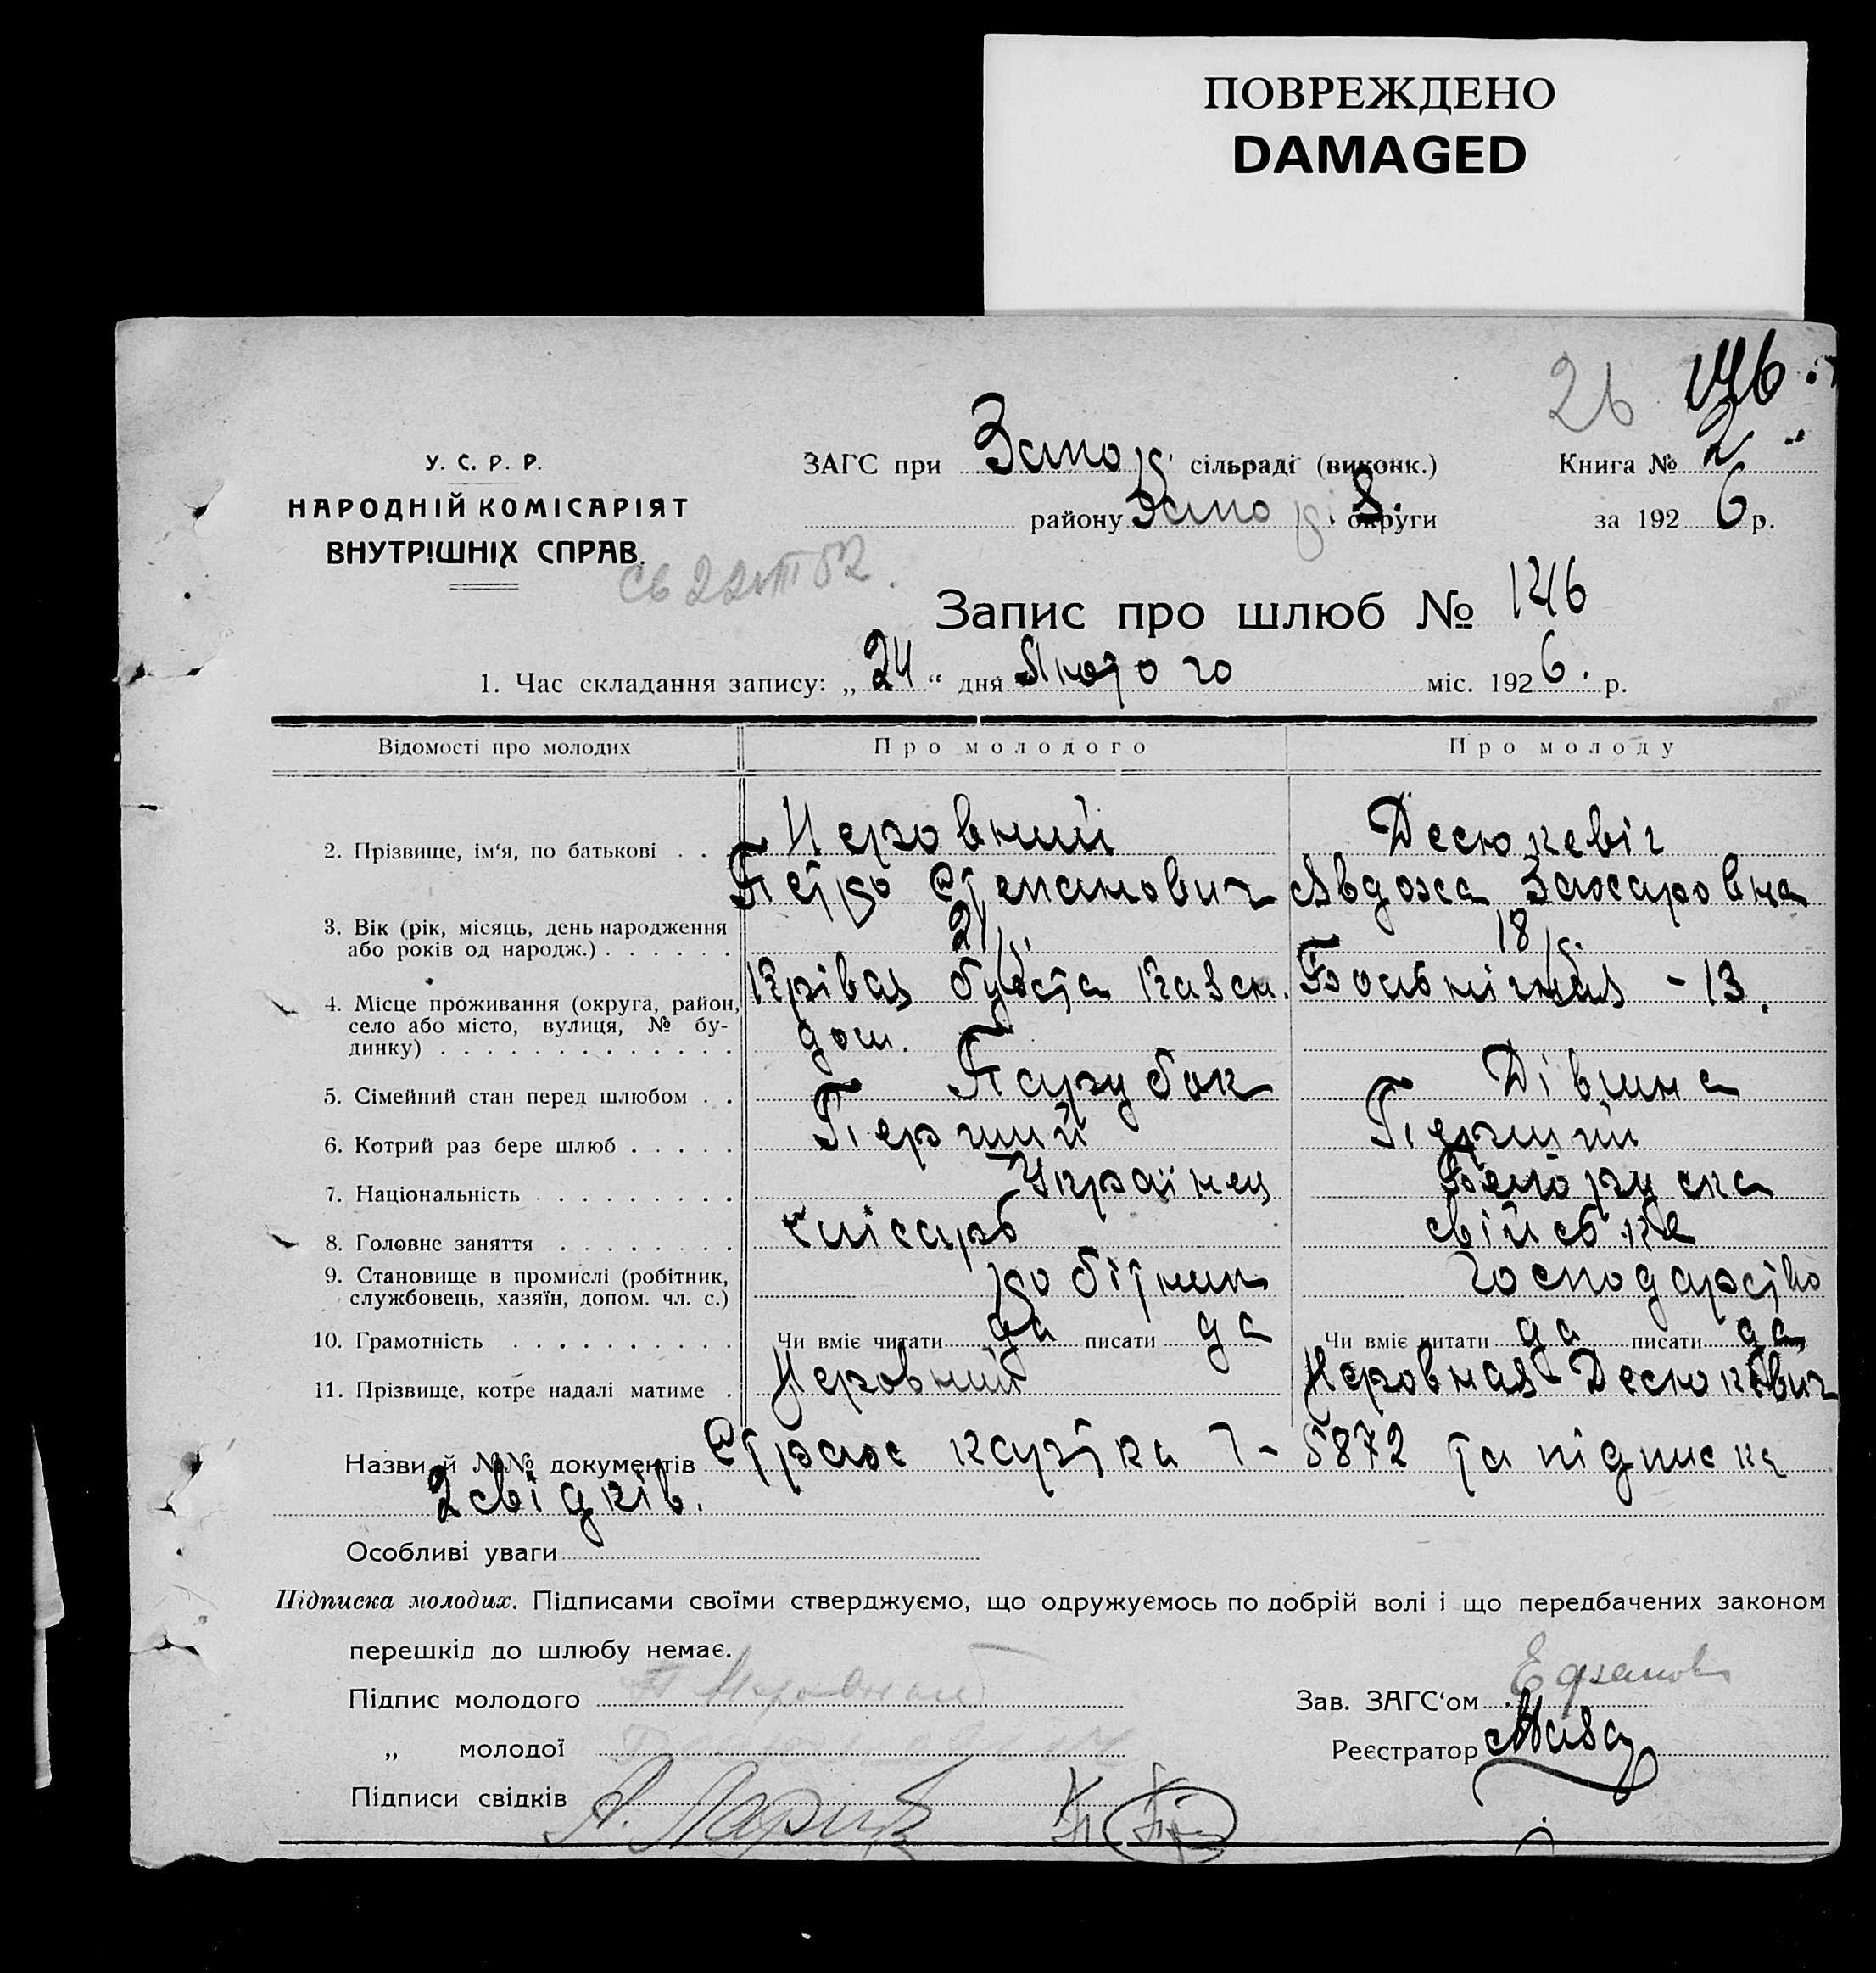 ПОВРЕЖДЕНО
DAMAGED
26 146
У. С. Р. Р.
НАРОДНІЙ КОМІСАРІЯТ
ВНУТРІШНІХ СПРАВ.
ЗАГС при Запор. сільраді (виконк.) Книга № 2
району Запор. округи за 1926 р.
Запис про шлюб № 146
1. Час складання запису: „24“ дня Лютого міс. 1926. р.
Відомості про молодих Про молодого Про молоду
2. Прізвище, ім‘я, по батькові . . Неровний Десюкевіч
Петро Степанович Явдоха Захаровна
3. Вік (рік, місяць, день народження
або років од народж.) . . . . . . 21 р. 18 р.
4. Місце проживання (округа, район,
село або місто, вулиця, № бу-
динку) . . . . . . . . . . . . . Крівая бухта Казен. дом. Больнічная - 13.
5. Сімейний стан перед шлюбом . . Парубок Дівчина
6. Котрий раз бере шлюб . . . . . Перший Перший
7. Національність . . . . . . . . . Українец Белоруска
8. Головне заняття . . . . . . . . Слісарь свійське
9. Становище в промислі (робітник,
службовець, хазяїн, допом. чл. с.) робітник господарство
10. Грамотність . . . . . . . . . . Чи вміє читати да писати да Чи вміє читати да писати да
11. Прізвище, котре надалі матиме . Неровний Неровная-Десюкевич
Назви й №№ документів Страхс картка 7-5872 та підписка
2 свідків.
Особливі уваги
Підписка молодих. Підписами своїми стверджуємо, що одружуємось по добрій волі і що передбачених законом
перешкід до шлюбу немає.
Підпис молодого П Неровный Зав. ЗАГС‘ом
„ молодої Реєстратор
Підписи свідків